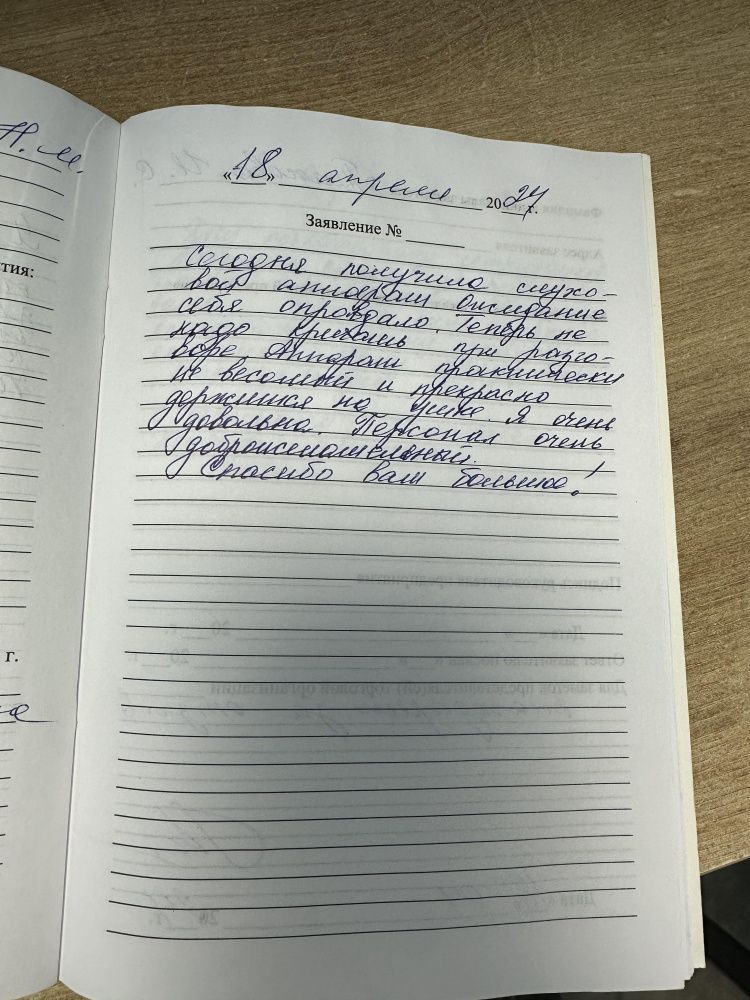 Н.М.
тия:
г.
«18» апреля 2024 г.
Заявление №
Сегодня получила слухо-
вой аппарат. Ожидание
себя оправдало. Теперь не
надо кричать при разго-
воре. Аппарат практически
не весомый и прекрасно
держится на ушке. Я очень
довольна. Персонал очень
доброжелательный.
Спасибо вам большое!